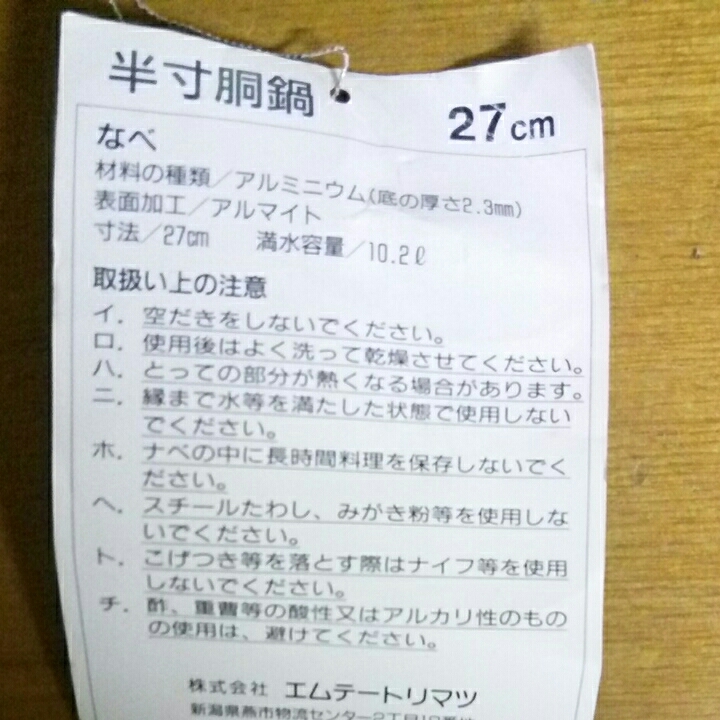 半寸胴鍋 27cm
なべ
材料の種類/アルミニウム(底の厚さ2.3mm)
表面加工/アルマイト
寸法/27cm 満水容量/10.2ℓ
取扱い上の注意
イ. 空だきをしないでください。
ロ. 使用後はよく洗って乾燥させてください。
ハ. とっての部分が熱くなる場合があります。
ニ. 縁まで水等を満たした状態で使用しない
でください。
ホ. ナベの中に長時間料理を保存しないでく
ださい。
ヘ. スチールたわし、みがき粉等を使用しな
いでください。
ト. こげつき等を落とす際はナイフ等を使用
しないでください。
チ. 酢、重曹等の酸性又はアルカリ性のもの
の使用は、避けてください。
株式会社 エムテートリマツ
新潟県燕市物流センター2丁目19番地